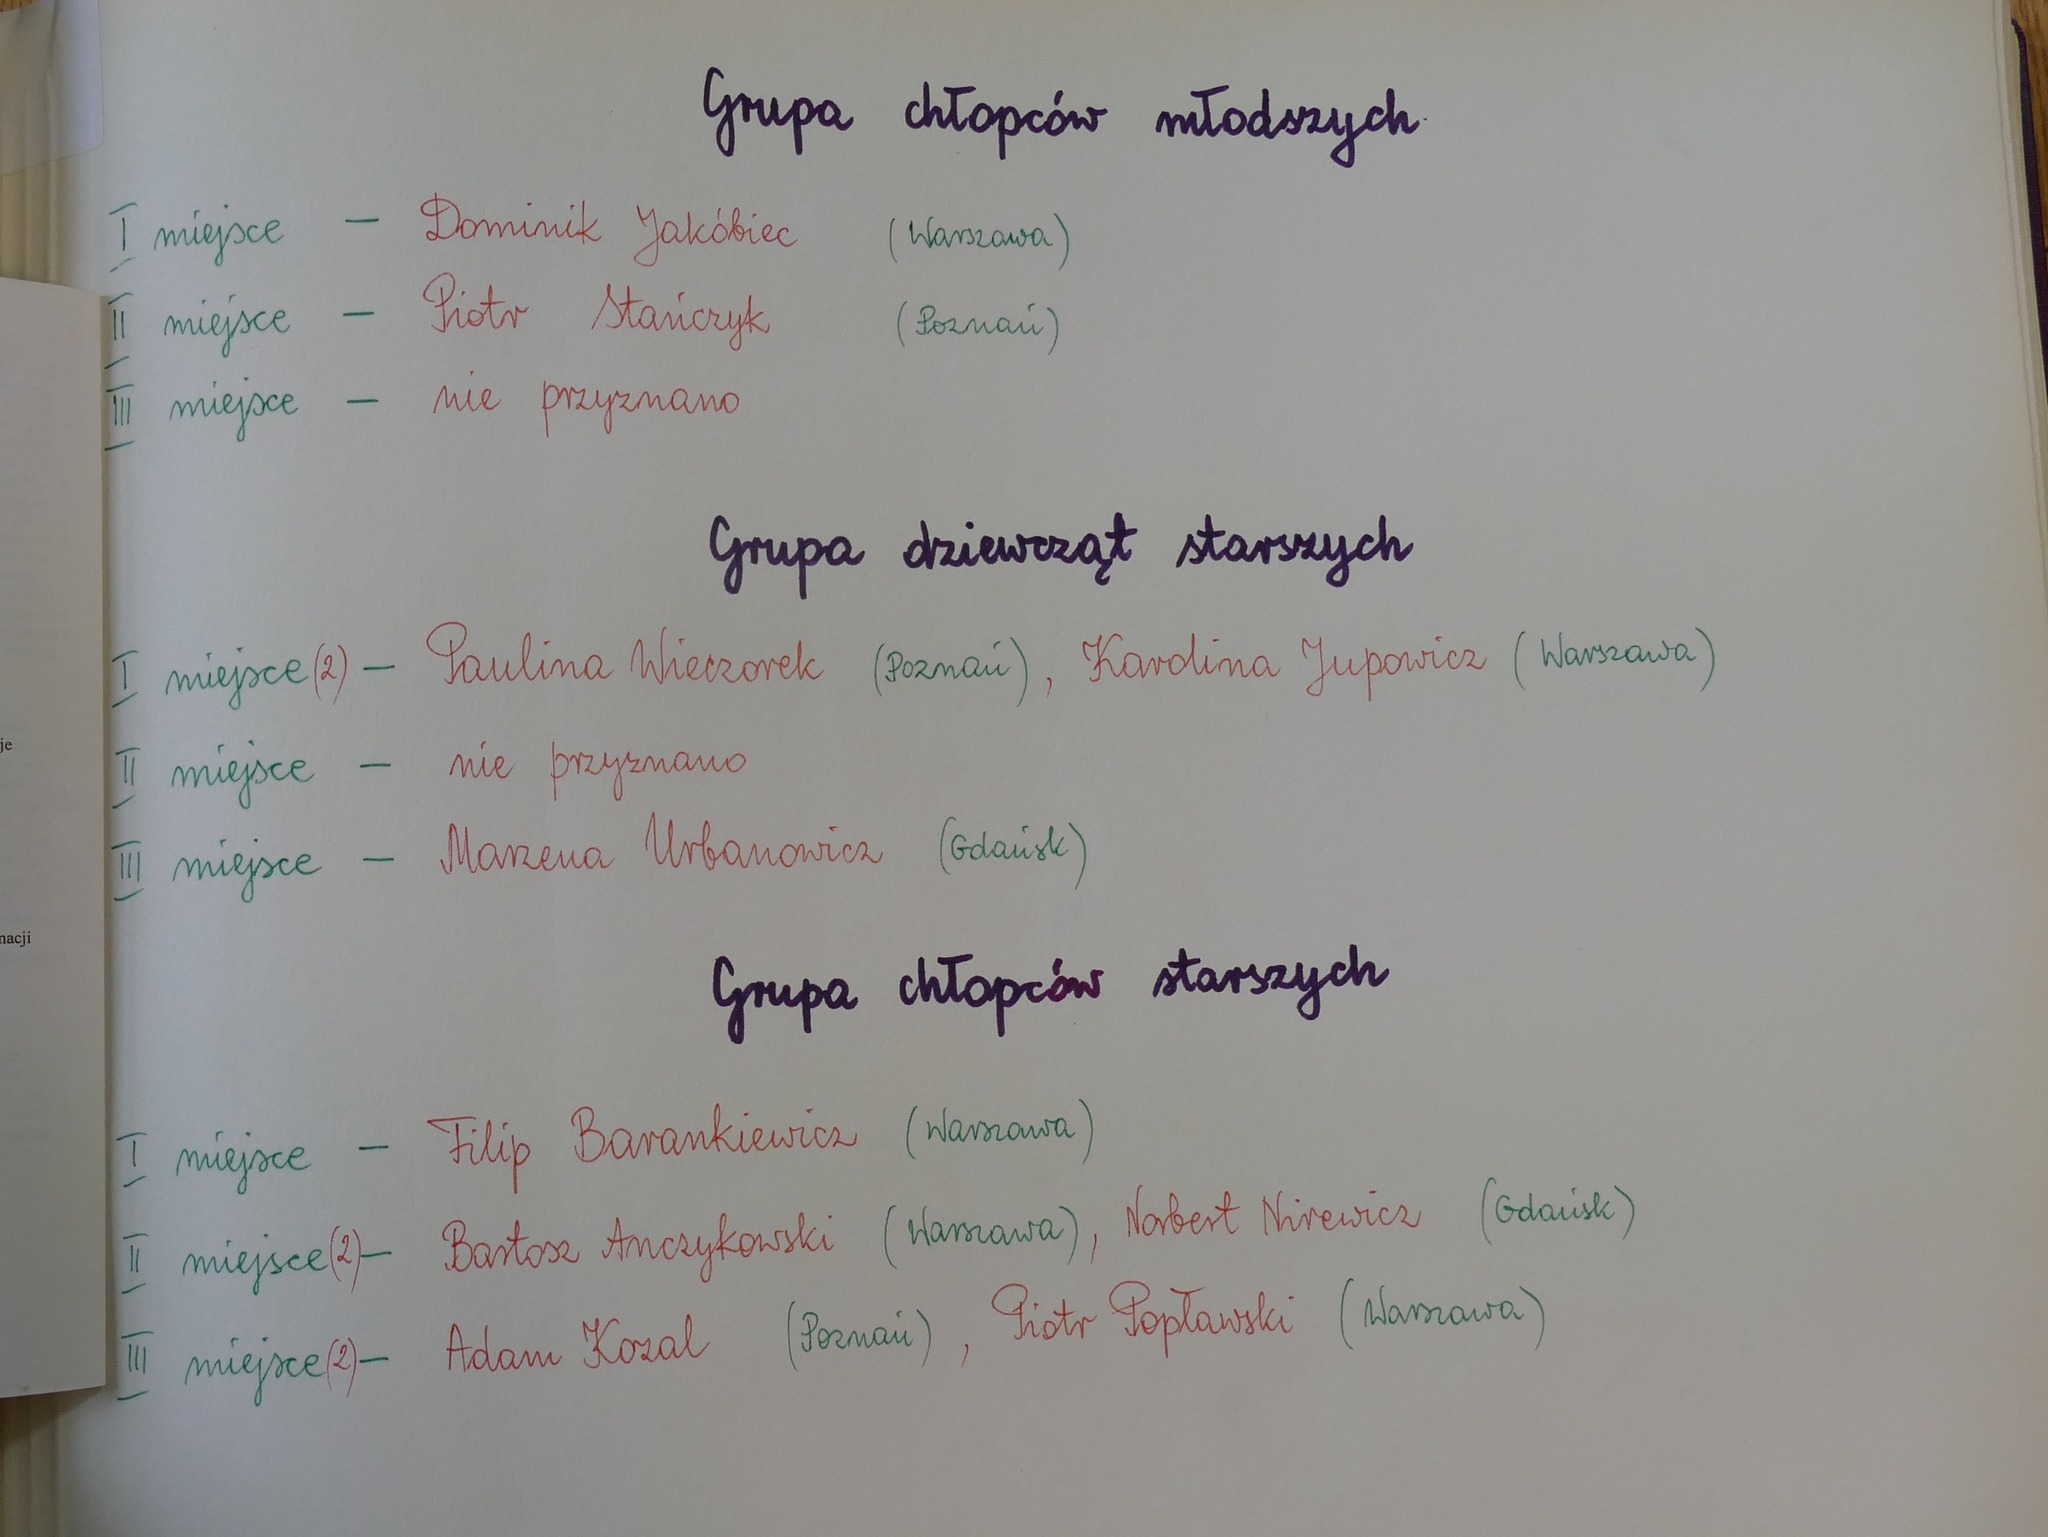 Grupa chłopców młodszych
I miejsce – Dominik Jakóbiec (Warszawa)
II miejsce – Piotr Stańczyk (Poznań)
III miejsce – nie przyznano
Grupa dziewcząt starszych
I miejsce (2) – Paulina Wieczorek (Poznań), Karolina Jupowicz (Warszawa)
II miejsce – nie przyznano
je
III miejsce – Marzena Urbanowicz (Gdańsk)
nacji
Grupa chłopców starszych
I miejsce – Filip Barankiewicz (Warszawa)
II miejsce (2) – Bartosz Anczykowski (Warszawa), Norbert Nirewicz (Gdańsk)
III miejsce (2) – Adam Kozal (Poznań), Piotr Popławski (Warszawa)